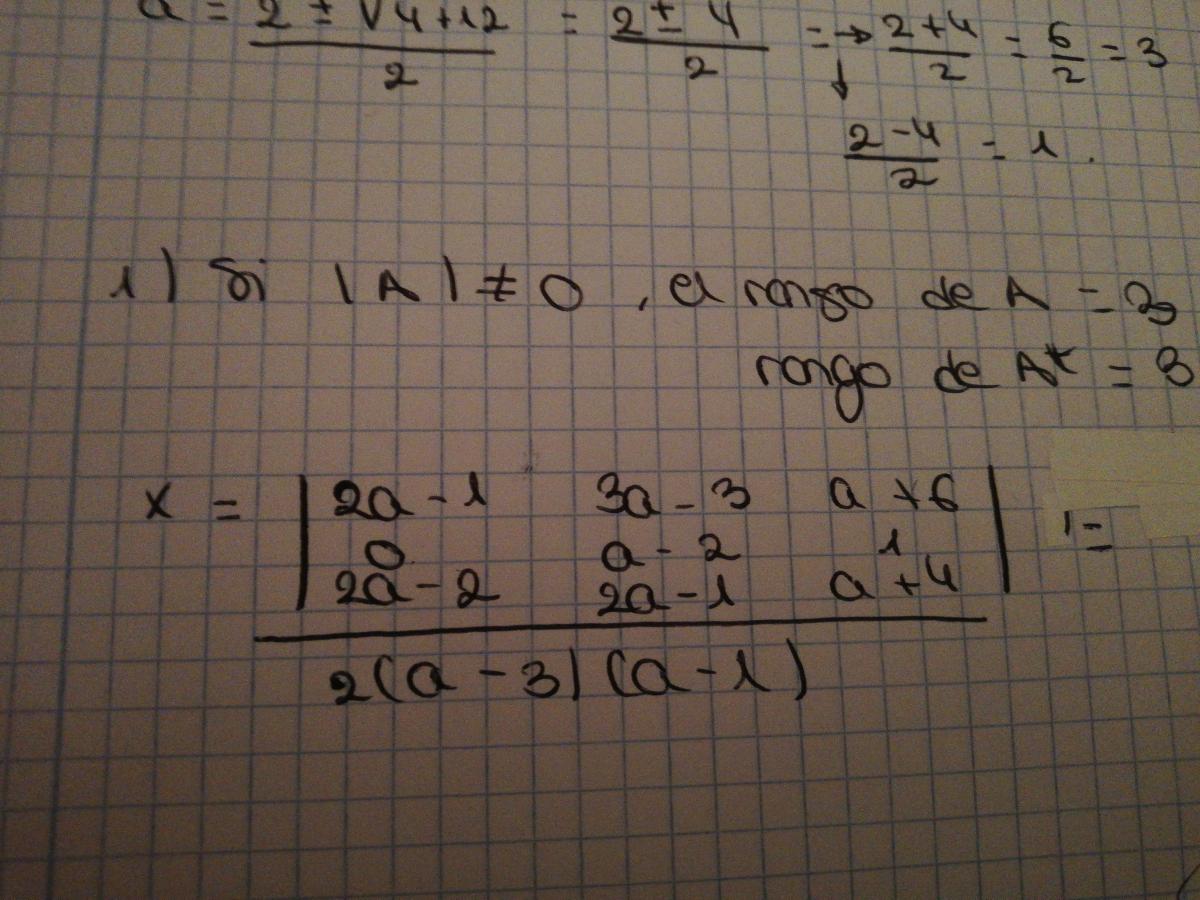 a = 2 ± √4+12 / 2 = 2 ± 4 / 2 = → 2+4 / 2 = 6/2 = 3
↓ 2-4 / 2 = 1.
1) Si |A| ≠ 0, el rango de A = 3
rango de A* = 3
x = | 2a-1 3a-3 a+6 | =
0 a-2 1
2a-2 2a-1 a+4
2(a-3)(a-1)